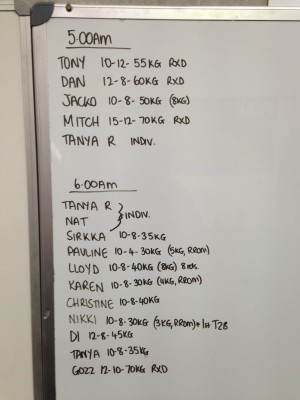 5:00am
TONY 10-12-55KG RXD
DAN 12-8-60KG RXD
JACKO 10-8-50KG (8KG)
MITCH 15-12-70KG RXD
TANYA R INDIV.
6:00am
TANYA R
NAT } INDIV.
SIRKKA 10-8-35KG
PAULINE 10-4-30KG (5KG, RROM)
LLOYD 10-8-40KG (8KG) 8 rds.
KAREN 10-8-30KG (4KG, RROM)
CHRISTINE 10-8-40KG
NIKKI 10-8-30KG (3KG, RROM)* 1st T2B
DI 12-8-45KG
TANYA 10-8-35kg
GOZZ 12-10-70KG RXD